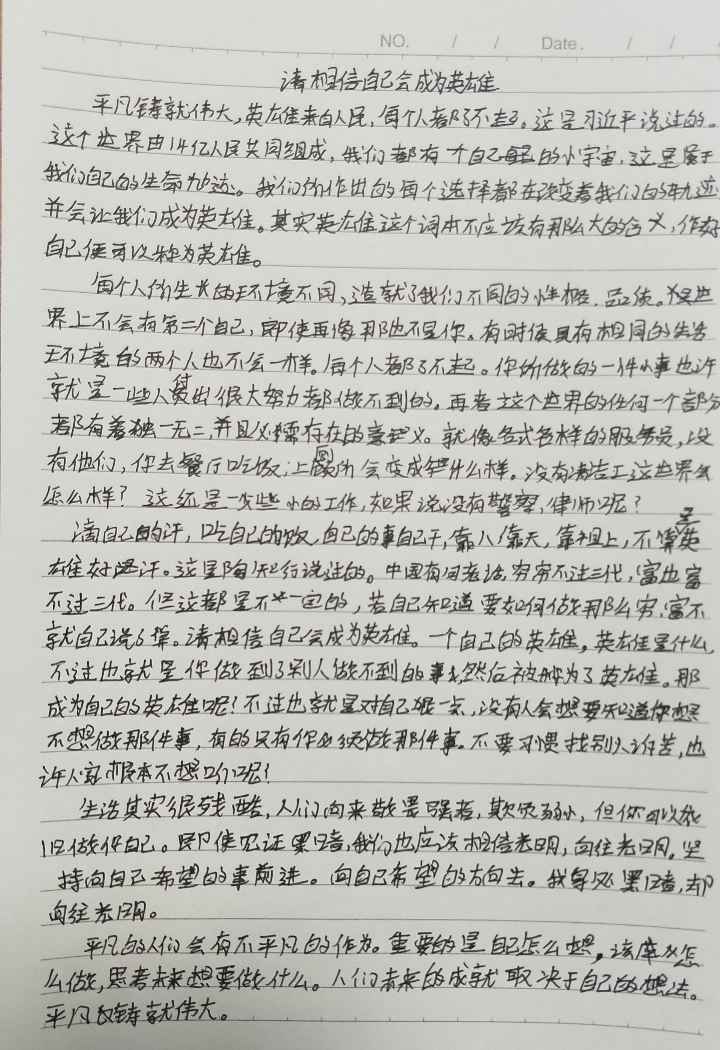 NO. / / Date. / /
请相信自己会成为英雄
平凡铸就伟大,英雄来自人民,每个人都了不起。这是习近平说过的。
这个世界由14亿人民共同组成,我们都有一个自己的小宇宙,这是属于
我们自己的生命轨迹。我们所作出的每个选择都在改变着我们的轨迹
并会让我们成为英雄。其实英雄这个词本不应该有那么大的含义,作好
自己便可以称为英雄。
每个人的生长的环境不同,造就了我们不同的性格、品质。世
界上不会有第二个自己,即使再像那也不是你。有时候具有相同的生活
环境的两个人也不会一样。每个人都了不起。你所做的一件小事也许
就是一些人付出很大努力都做不到的。再者这个世界的任何一个部分
都有着独一无二,并且必须存在的意义。就像各式各样的服务员,没
有他们,你去餐厅吃饭,上厕所会变成什么样。没有清洁工这世界会
怎么样?这还是一些小的工作,如果说没有警察,律师呢?
滴自己的汗,吃自己的饭,自己的事自己干,靠人靠天,靠祖上,不算是英
雄好汉。这是陶知行说过的。中国有句老话,穷穷不过三代,富也富
不过三代。但这都是不一定的,若自己知道要如何做那么穷,富不
就自己说了算。请相信自己会成为英雄。一个自己的英雄,英雄是什么,
不过也就是你做到了别人做不到的事,然后被称为了英雄。那
成为自己的英雄呢?不过也就是对自己狠一点,没有人会想要知道你想
不想做那件事,有的只有你必须做那件事。不要习惯找别人诉苦,也
许人家根本不想听呢?
生活其实很残酷,人们向来敬畏强者,欺负弱小,但你可以依
旧做你自己。即使见证黑暗,我们也应该相信光明,向往光明。坚
持向自己希望的事前进。向自己希望的方向去。我身处黑暗,却
向往光明。
平凡的人们会有不平凡的作为。重要的是自己怎么想,该怎
么做,思考未来想要做什么。人们未来的成就取决于自己的想法。
平凡铸就伟大。